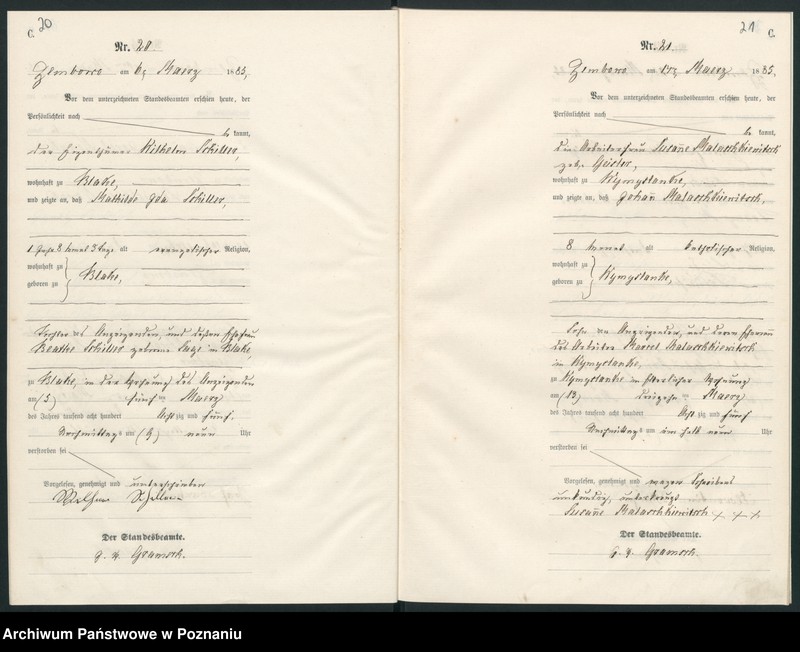 C. 20
Nr. 20.
Zlmbowo am 6ten Maerz 1885,
Vor dem unterzeichneten Standesbeamten erschien heute, der
Persönlichkeit nach
be kannt,
der Eigenthümer Wilhelm Schiller,
wohnhaft zu Blake,
und zeigte an, daß Mathilde Ida Schiller,
1 Jahr 8 3 Tage alt evangelischer Religion,
wohnhaft zu
Blake,
geboren zu
Tochter des Anzeigenden, und dessen Ehefrau
Beathe Schiller geborene in Blake,
zu Blake, in der Wohnung des Anzeigenden
am (5) fünf ten Maerz
des Jahres tausend acht hundert Acht zig und fünf.
Nachmittags um (9) neun Uhr
verstorben sei
Vorgelesen, genehmigt und unterschrieben
Wilhelm Schiller
Der Standesbeamte.
g. v. Gramsch.
21 C.
Nr. 21.
Zlmbowo am Maerz 1885,
Vor dem unterzeichneten Standesbeamten erschien heute, der
Persönlichkeit nach
be kannt,
die Arbeiterfrau Susanne
geb. Geisler,
wohnhaft zu
und zeigte an, daß Johann
8 alt katholischer Religion,
wohnhaft zu
geboren zu
Sohn der Anzeigenden, und deren Ehemann
des Arbeiter Marcel
in
zu in elterlicher Wohnung
am (13) dreizehn ten Maerz
des Jahres tausend acht hundert Acht zig und fünf
Nachmittags um ein halb neun Uhr
verstorben sei
Vorgelesen, genehmigt und wegen Schreibens
unkundig, unterkreuzt
Susanne + + +
Der Standesbeamte.
g. v. Gramsch
Archiwum Państwowe w Poznaniu